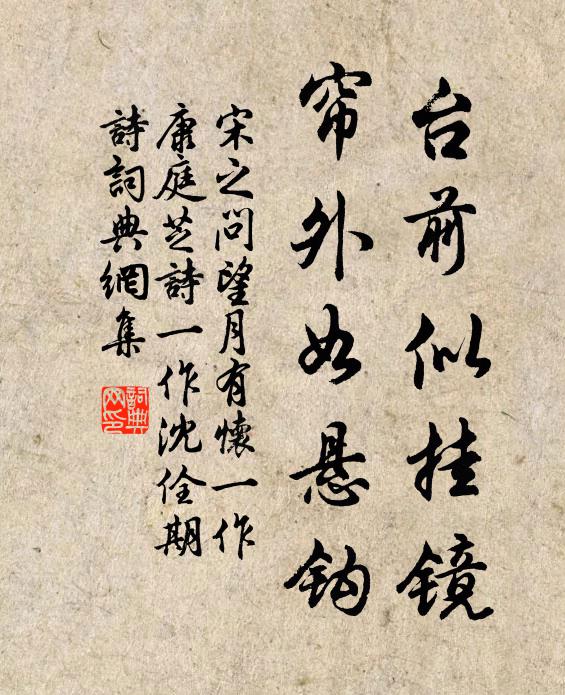 台前似挂镜
帘外如悬钩
宋之问望月有懷一作
康庭芝詩一作沈佺期
詩詞典網集
詞典
网印